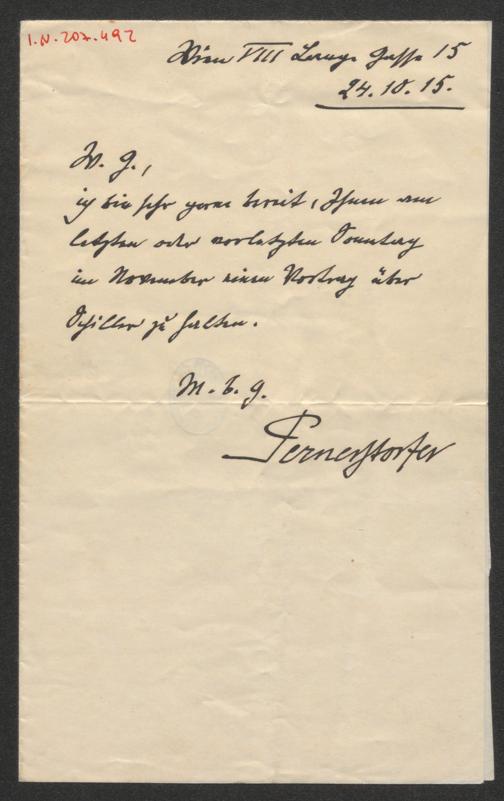 I.N. 207.492
Wien VIII Lange Gasse 15
24.10.15.
W. G.,
ich bin sehr gerne bereit, Ihnen am
letzten oder vorletzten Sonntag
im November einen Vortrag über
Schiller zu halten.
M. b. G.
Pernerstorfer